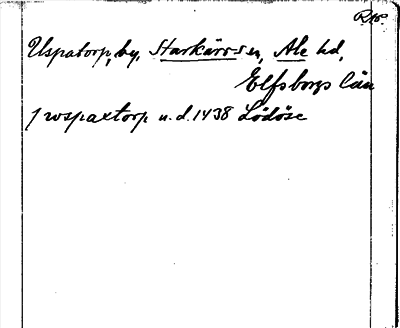 RAp.
Uspatorp, by, Starkärrs sn, Ale hd,
Elfsborgs län
J wspaxtorp u. d. 1438 Lödöse